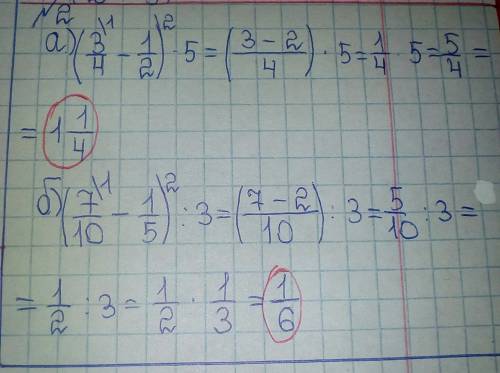 №2
а) (3\1/4 - 1\2/2) · 5 = (3 - 2/4) · 5 = 1/4 · 5 = 5/4 =
= 1 1/4
б) (7\1/10 - 1\2/5) : 3 = (7 - 2/10) : 3 = 5/10 : 3 =
= 1/2 : 3 = 1/2 · 1/3 = 1/6